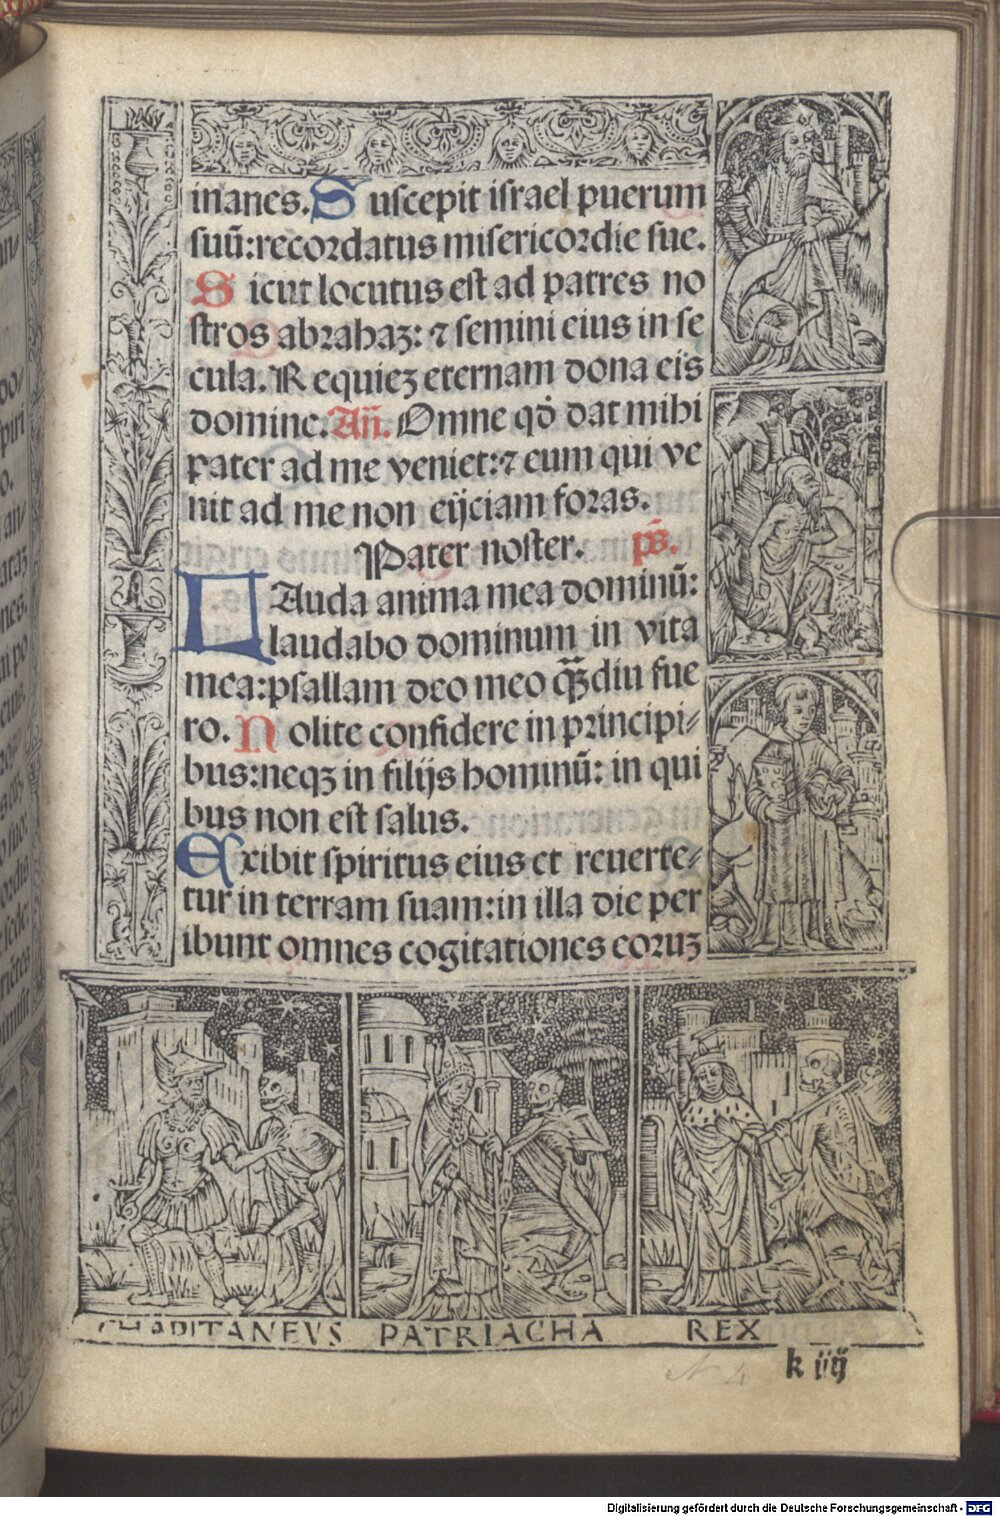 inanes. Suscepit israel puerum
suū: recordatus misericordie sue.
Sicut locutus est ad patres no
stros abrahaꝫ: ⁊ semini eius in se
cula. Requieꝫ eternam dona eis
domine. Añ. Omne qð dat mihi
pater ad me veniet: ⁊ eum qui ve
nit ad me non eijciam foras.
Pater noster. p̄s.
LAuda anima mea dominū:
laudabo dominum in vita
mea: psallam deo meo q̄ꝫdiu fue
ro. Nolite confidere in principi⸗
bus: neqꝫ in filijs hominū: in qui
bus non est salus.
Exibit spiritus eius et reuerte⸗
tur in terram suam: in illa die per
ibunt omnes cogitationes eoruꝫ
CHAPITANEVS PATRIACHA REX
k iiij
N 4
Digitalisierung gefördert durch die Deutsche Forschungsgemeinschaft - DFG